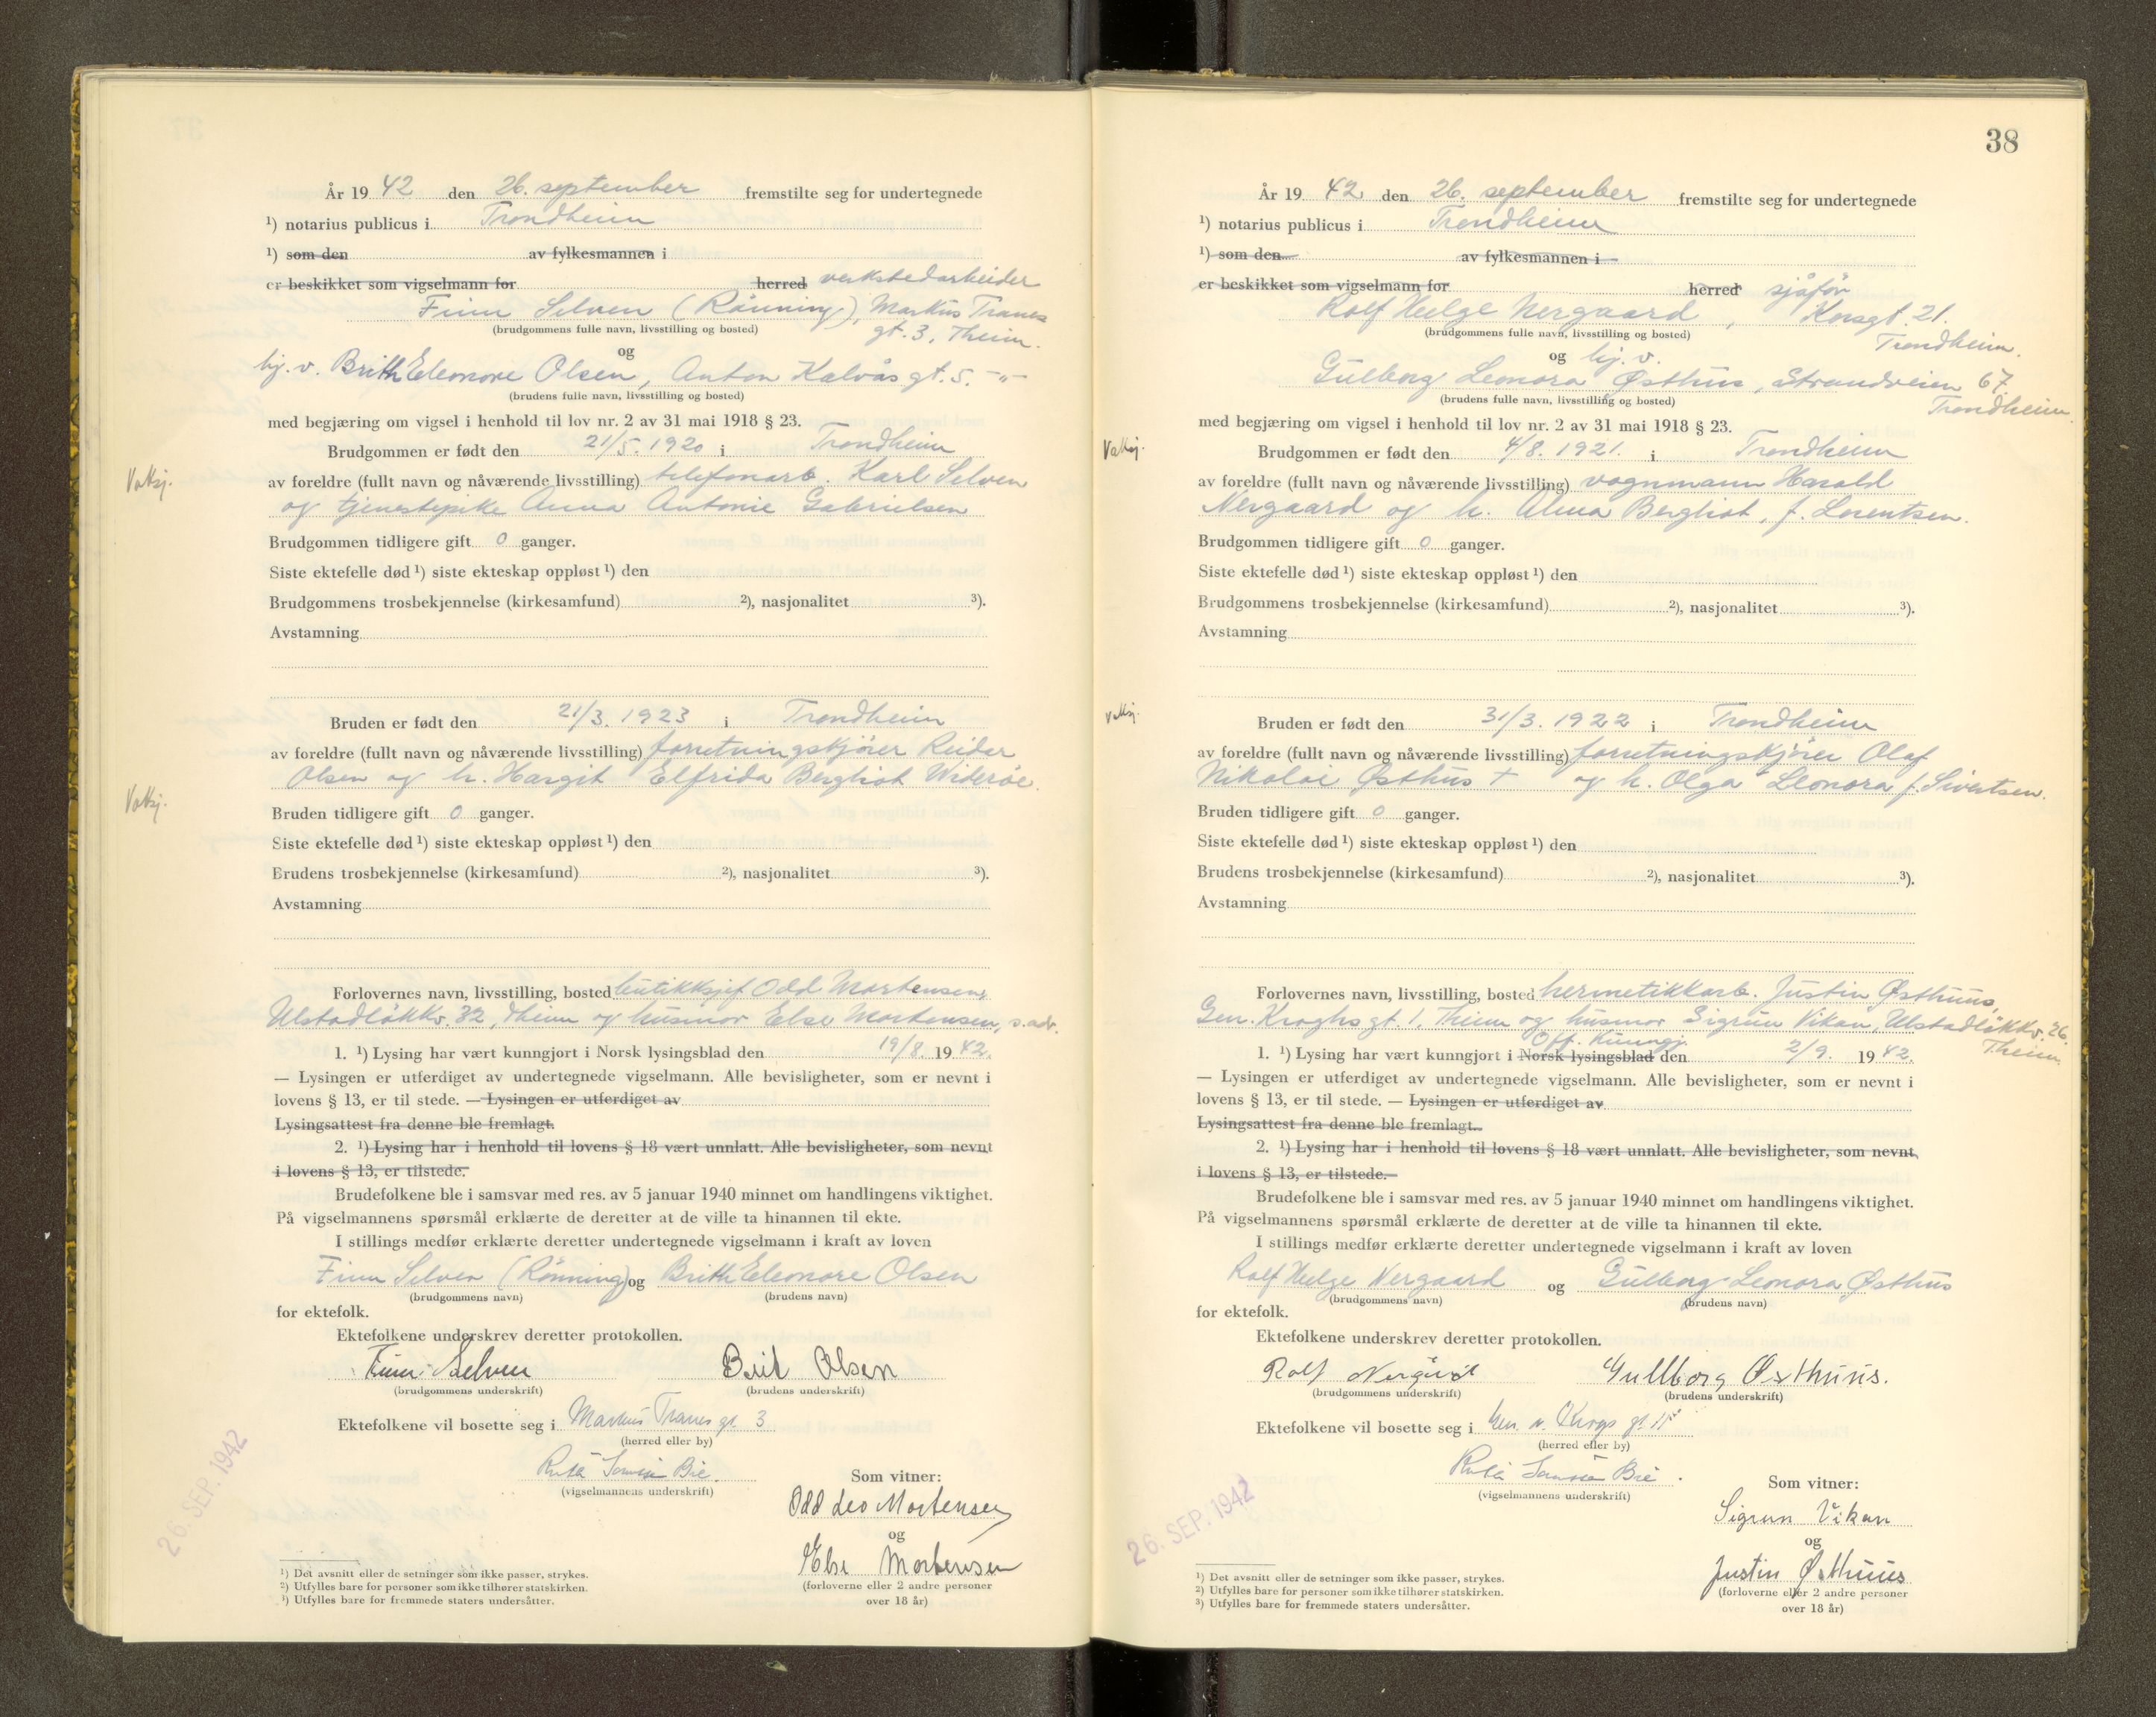 År 19 42 den 26. september fremstilte seg for undertegnede
¹) notarius publicus i Trondheim
¹) som den av fylkesmannen i
er beskikket som vigselmann for herred verkstedarbeider
Finn Selven (Rönning), Markus Tranes
(brudgommens fulle navn, livsstilling og bosted) gt. 3, Theim.
og
hj. v. Brith Eleonore Olsen, Anton Kalvås gt. 5. -"-
(brudens fulle navn, livsstilling og bosted)
med begjæring om vigsel i henhold til lov nr. 2 av 31 mai 1918 § 23.
Brudgommen er født den 21/5. 1920 i Trondheim
Vattsj.
av foreldre (fullt navn og nåværende livsstilling) telefonarb. Karl Selven
og tjenestepike Anna Antonie Gabrielsen
Brudgommen tidligere gift 0 ganger.
Siste ektefelle død ¹) siste ekteskap oppløst ¹) den
Brudgommens trosbekjennelse (kirkesamfund) ²), nasjonalitet ³).
Avstamning
Bruden er født den 21/3. 1923 i Trondheim
av foreldre (fullt navn og nåværende livsstilling) forretningskjörer Reidar
Olsen og h. Margit Elfrida Bergliot Wideröe.
Vattsj.
Bruden tidligere gift 0 ganger.
Siste ektefelle død ¹) siste ekteskap oppløst ¹) den
Brudens trosbekjennelse (kirkesamfund) ²), nasjonalitet ³).
Avstamning
Forlovernes navn, livsstilling, bosted butikksjef Odd Mortensen,
Ulstadlökkv. 32, Theim og husmor Else Mortensen, s. adr.
1. ¹) Lysing har vært kunngjort i Norsk lysingsblad den 19/8. 19 42.
— Lysingen er utferdiget av undertegnede vigselmann. Alle bevisligheter, som er nevnt i
lovens § 13, er til stede. — Lysingen er utferdiget av
Lysingsattest fra denne ble fremlagt.
2. ¹) Lysing har i henhold til lovens § 18 vært unnlatt. Alle bevisligheter, som nevnt
i lovens § 13, er tilstede.
Brudefolkene ble i samsvar med res. av 5 januar 1940 minnet om handlingens viktighet.
På vigselmannens spørsmål erklærte de deretter at de ville ta hinannen til ekte.
I stillings medfør erklærte deretter undertegnede vigselmann i kraft av loven
Finn Selven (Rönning) og Brith Eleonore Olsen
(brudgommens navn) (brudens navn)
for ektefolk.
Ektefolkene underskrev deretter protokollen.
Finn Selven Brit Olsen
(brudgommens underskrift) (brudens underskrift)
Ektefolkene vil bosette seg i Markus Tranes gt. 3
(herred eller by)
Bie.
(vigselmannens underskrift)
Som vitner:
Odd Leo Mortensen
og
Else Mortensen
(forloverne eller 2 andre personer
over 18 år)
26. SEP. 1942
¹) Det avsnitt eller de setninger som ikke passer, strykes.
²) Utfylles bare for personer som ikke tilhører statskirken.
³) Utfylles bare for fremmede staters undersåtter.
38
År 19 42 den 26. september fremstilte seg for undertegnede
¹) notarius publicus i Trondheim
¹) som den av fylkesmannen i
er beskikket som vigselmann for herred sjåför
Rolf Helge Nergaard, Korsgt. 21.
(brudgommens fulle navn, livsstilling og bosted) Trondheim.
og hj. v.
Gulborg Leonora Østhus, Strandveien 67
(brudens fulle navn, livsstilling og bosted) Trondheim
med begjæring om vigsel i henhold til lov nr. 2 av 31 mai 1918 § 23.
Vattsj.
Brudgommen er født den 4/8. 1921. i Trondheim
av foreldre (fullt navn og nåværende livsstilling) vognmann Harald
Nergaard og h. Alma Bergliot, f. Lorentsen.
Brudgommen tidligere gift 0 ganger.
Siste ektefelle død ¹) siste ekteskap oppløst ¹) den
Brudgommens trosbekjennelse (kirkesamfund) ²), nasjonalitet ³).
Avstamning
Vattsj.
Bruden er født den 31/3. 1922 i Trondheim
av foreldre (fullt navn og nåværende livsstilling) forretningskjörer Olaf
Nikolai Østhus + og h. Olga Leonora f. Sivertsen.
Bruden tidligere gift 0 ganger.
Siste ektefelle død ¹) siste ekteskap oppløst ¹) den
Brudens trosbekjennelse (kirkesamfund) ²), nasjonalitet ³).
Avstamning
Forlovernes navn, livsstilling, bosted hermetikkarb. Justin Østhus,
Gen. Kroghs gt. 1, Theim og husmor Sigrun Vikan, Ulstadlökkv. 26.
Off. kunngj. Theim.
1. ¹) Lysing har vært kunngjort i Norsk lysingsblad den 2/9. 19 42.
— Lysingen er utferdiget av undertegnede vigselmann. Alle bevisligheter, som er nevnt i
lovens § 13, er til stede. — Lysingen er utferdiget av
Lysingsattest fra denne ble fremlagt.
2. ¹) Lysing har i henhold til lovens § 18 vært unnlatt. Alle bevisligheter, som nevnt
i lovens § 13, er tilstede.
Brudefolkene ble i samsvar med res. av 5 januar 1940 minnet om handlingens viktighet.
På vigselmannens spørsmål erklærte de deretter at de ville ta hinannen til ekte.
I stillings medfør erklærte deretter undertegnede vigselmann i kraft av loven
Rolf Helge Nergaard og Gulborg Leonora Østhus
(brudgommens navn) (brudens navn)
for ektefolk.
Ektefolkene underskrev deretter protokollen.
Rolf Nergård Gullborg Østhus.
(brudgommens underskrift) (brudens underskrift)
Ektefolkene vil bosette seg i Gen. v. Krogs gt.
(herred eller by)
Bie.
(vigselmannens underskrift)
Som vitner:
Sigrun Vikan
og
Justin Østhus
(forloverne eller 2 andre personer
over 18 år)
26. SEP. 1942
¹) Det avsnitt eller de setninger som ikke passer, strykes.
²) Utfylles bare for personer som ikke tilhører statskirken.
³) Utfylles bare for fremmede staters undersåtter.